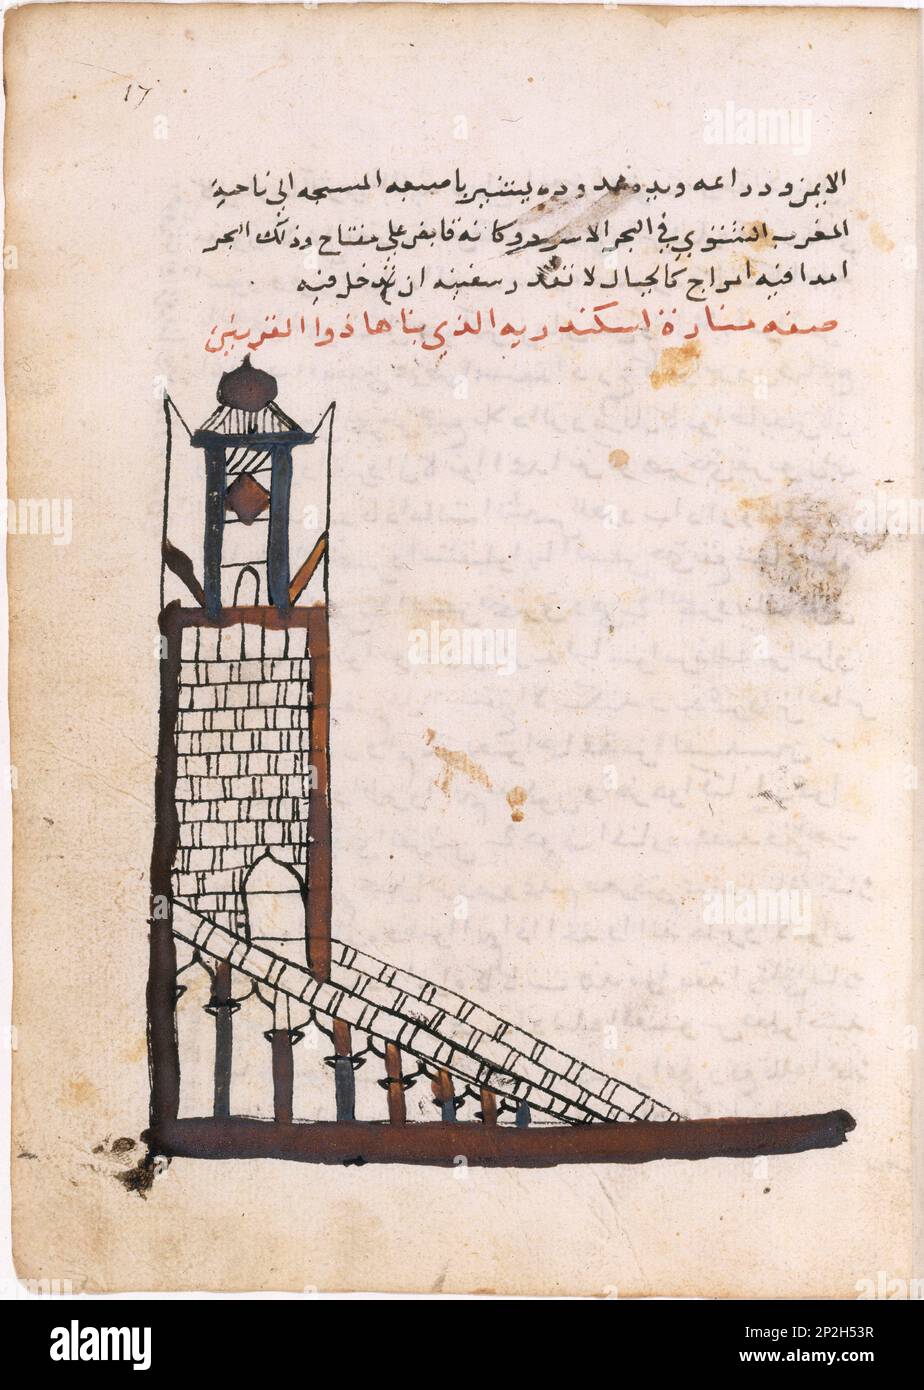 17
الايمن ودراعه ويده ممدوده يشير باصبعه المسبحه الى ناحية
المغرب الشتوي في البحر الاسود وكانه قابض على مفتاح وذلك البحر
فيه امواج كالجبال لا تقدر سفينه ان تدخل فيه
صفه منارة اسكندريه الذي بناها ذوا القرنين
alamy
alamy
alamy
alamy
Image ID: 2P2H53R
www.alamy.com